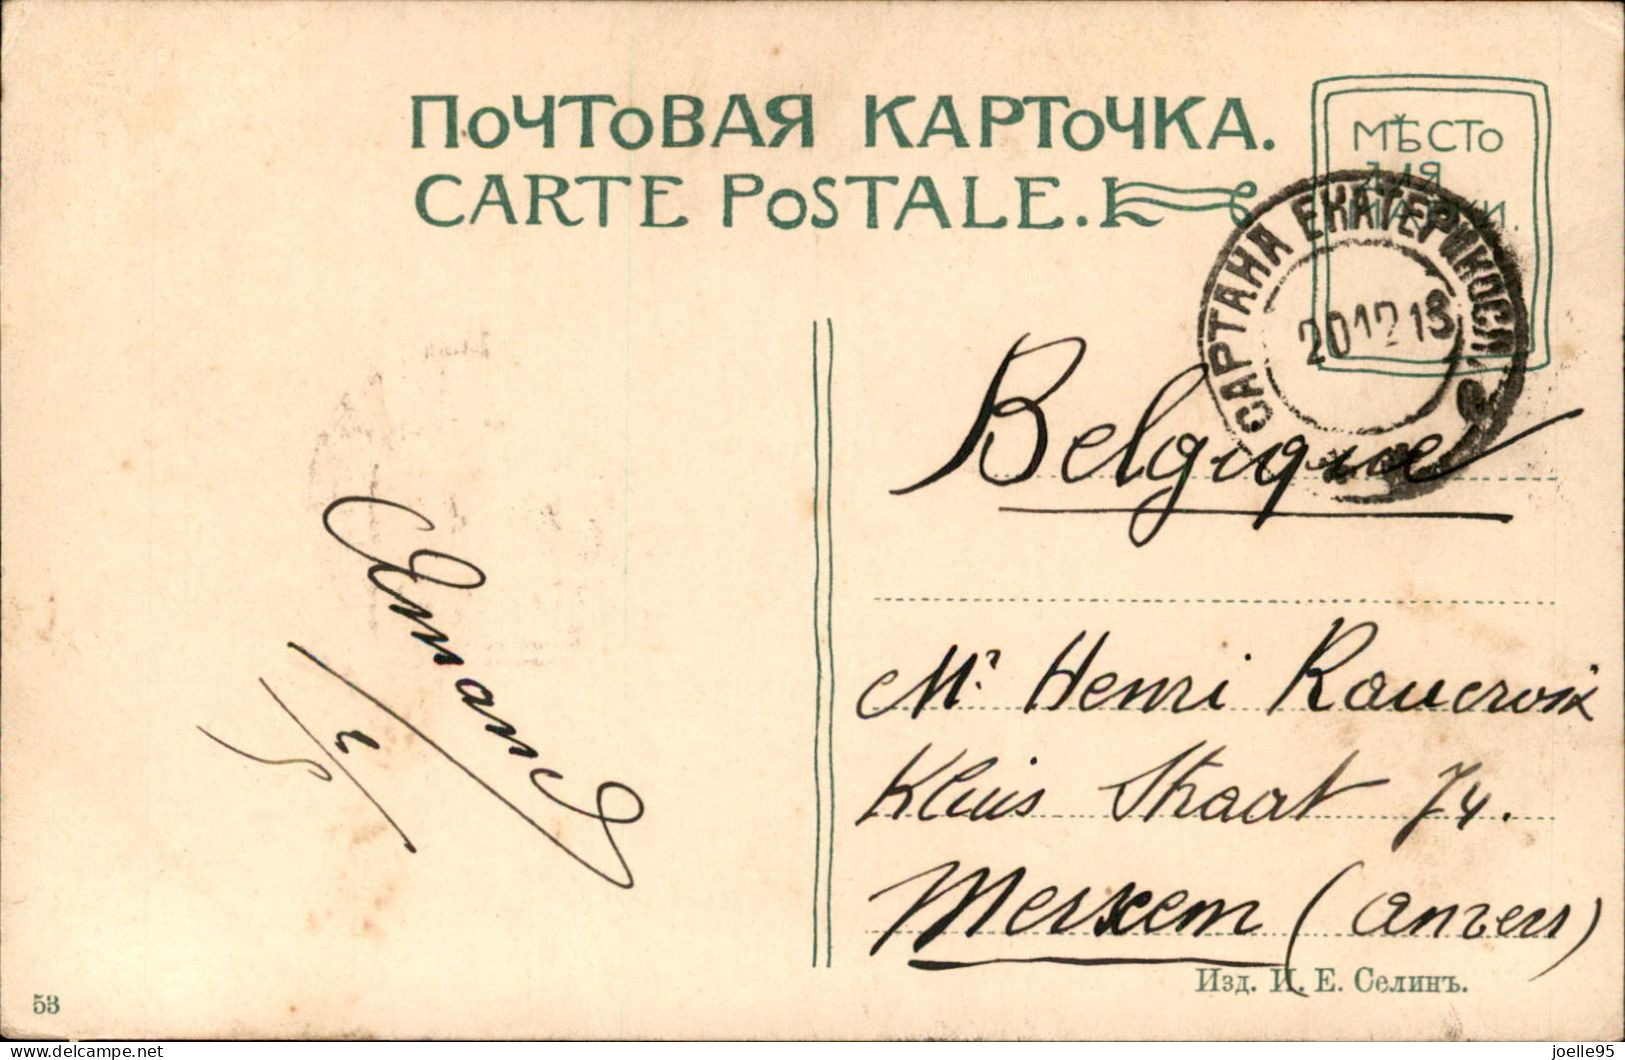 ПОЧТОВАЯ КАРТОЧКА.
CARTE POSTALE.
МѢСТО
ДЛЯ
МАРКИ.
САРТАНА ЕКАТЕРИНОСЛ.
20 12 13
Belgique
Mr. Henri Raucroix
Kluis Straat 74.
Merxem (Anvers)
Amand
Изд. И. Е. Селинъ.
53
delcampe.net
joelle95